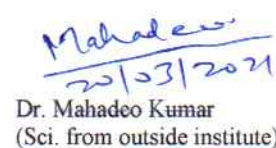 Mahadeo
20/03/2021
Dr. Mahadeo Kumar
(Sci. from outside institute)